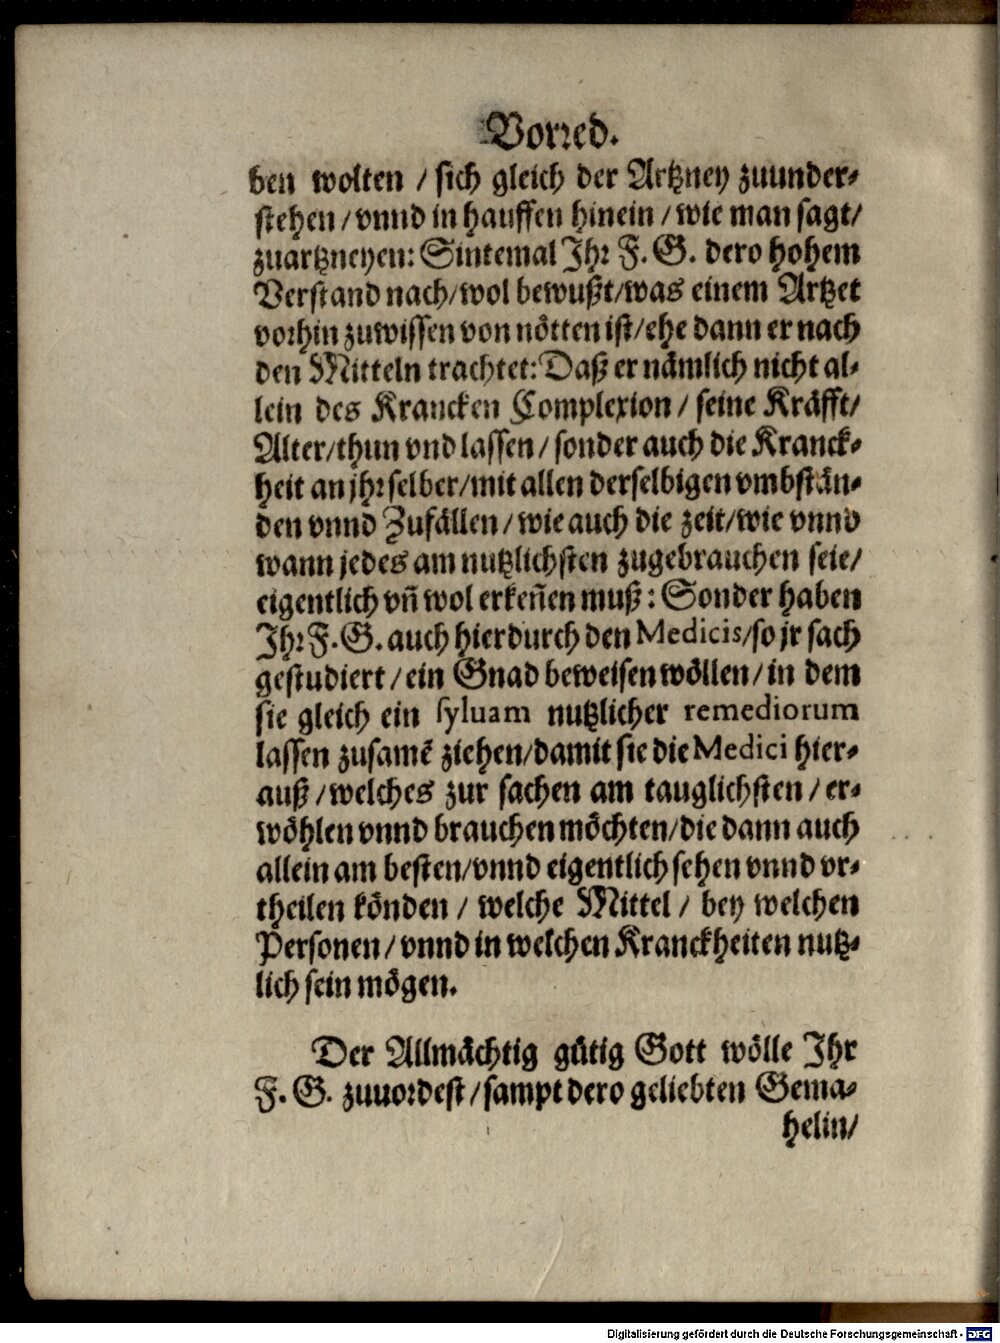 Vorred.
ben wolten / sich gleich der Artzney zuunder-
stehen / vnnd in hauffen hinein / wie man sagt/
zuartzneyen: Sintemal Ihr F. G. dero hohem
Verstand nach/wol bewußt/was einem Artzet
vorhin zuwissen von nötten ist/ehe dann er nach
den Mitteln trachtet: Daß er nämlich nicht al-
lein des Krancken Complexion / seine Kräfft/
Alter/thun vnd lassen / sonder auch die Kranck-
heit an jhr selber/mit allen derselbigen vmbstän-
den vnnd Zufällen / wie auch die zeit/wie vnnd
wann jedes am nutzlichsten zugebrauchen seie/
eigentlich vñ wol erkeñen muß: Sonder haben
Ihr F. G. auch hierdurch den Medicis/so jr sach
gestudiert / ein Gnad beweisen wöllen / in dem
sie gleich ein syluam nutzlicher remediorum
lassen zusamē ziehen/damit sie die Medici hier-
auß / welches zur sachen am tauglichsten / er-
wöhlen vnnd brauchen möchten/die dann auch
allein am besten/vnnd eigentlich sehen vnnd vr-
theilen könden / welche Mittel / bey welchen
Personen / vnnd in welchen Kranckheiten nutz-
lich sein mögen.
Der Allmächtig gütig Gott wölle Ihr
F. G. zuuordest / sampt dero geliebten Gema-
helin/
Digitalisierung gefördert durch die Deutsche Forschungsgemeinschaft - DFG